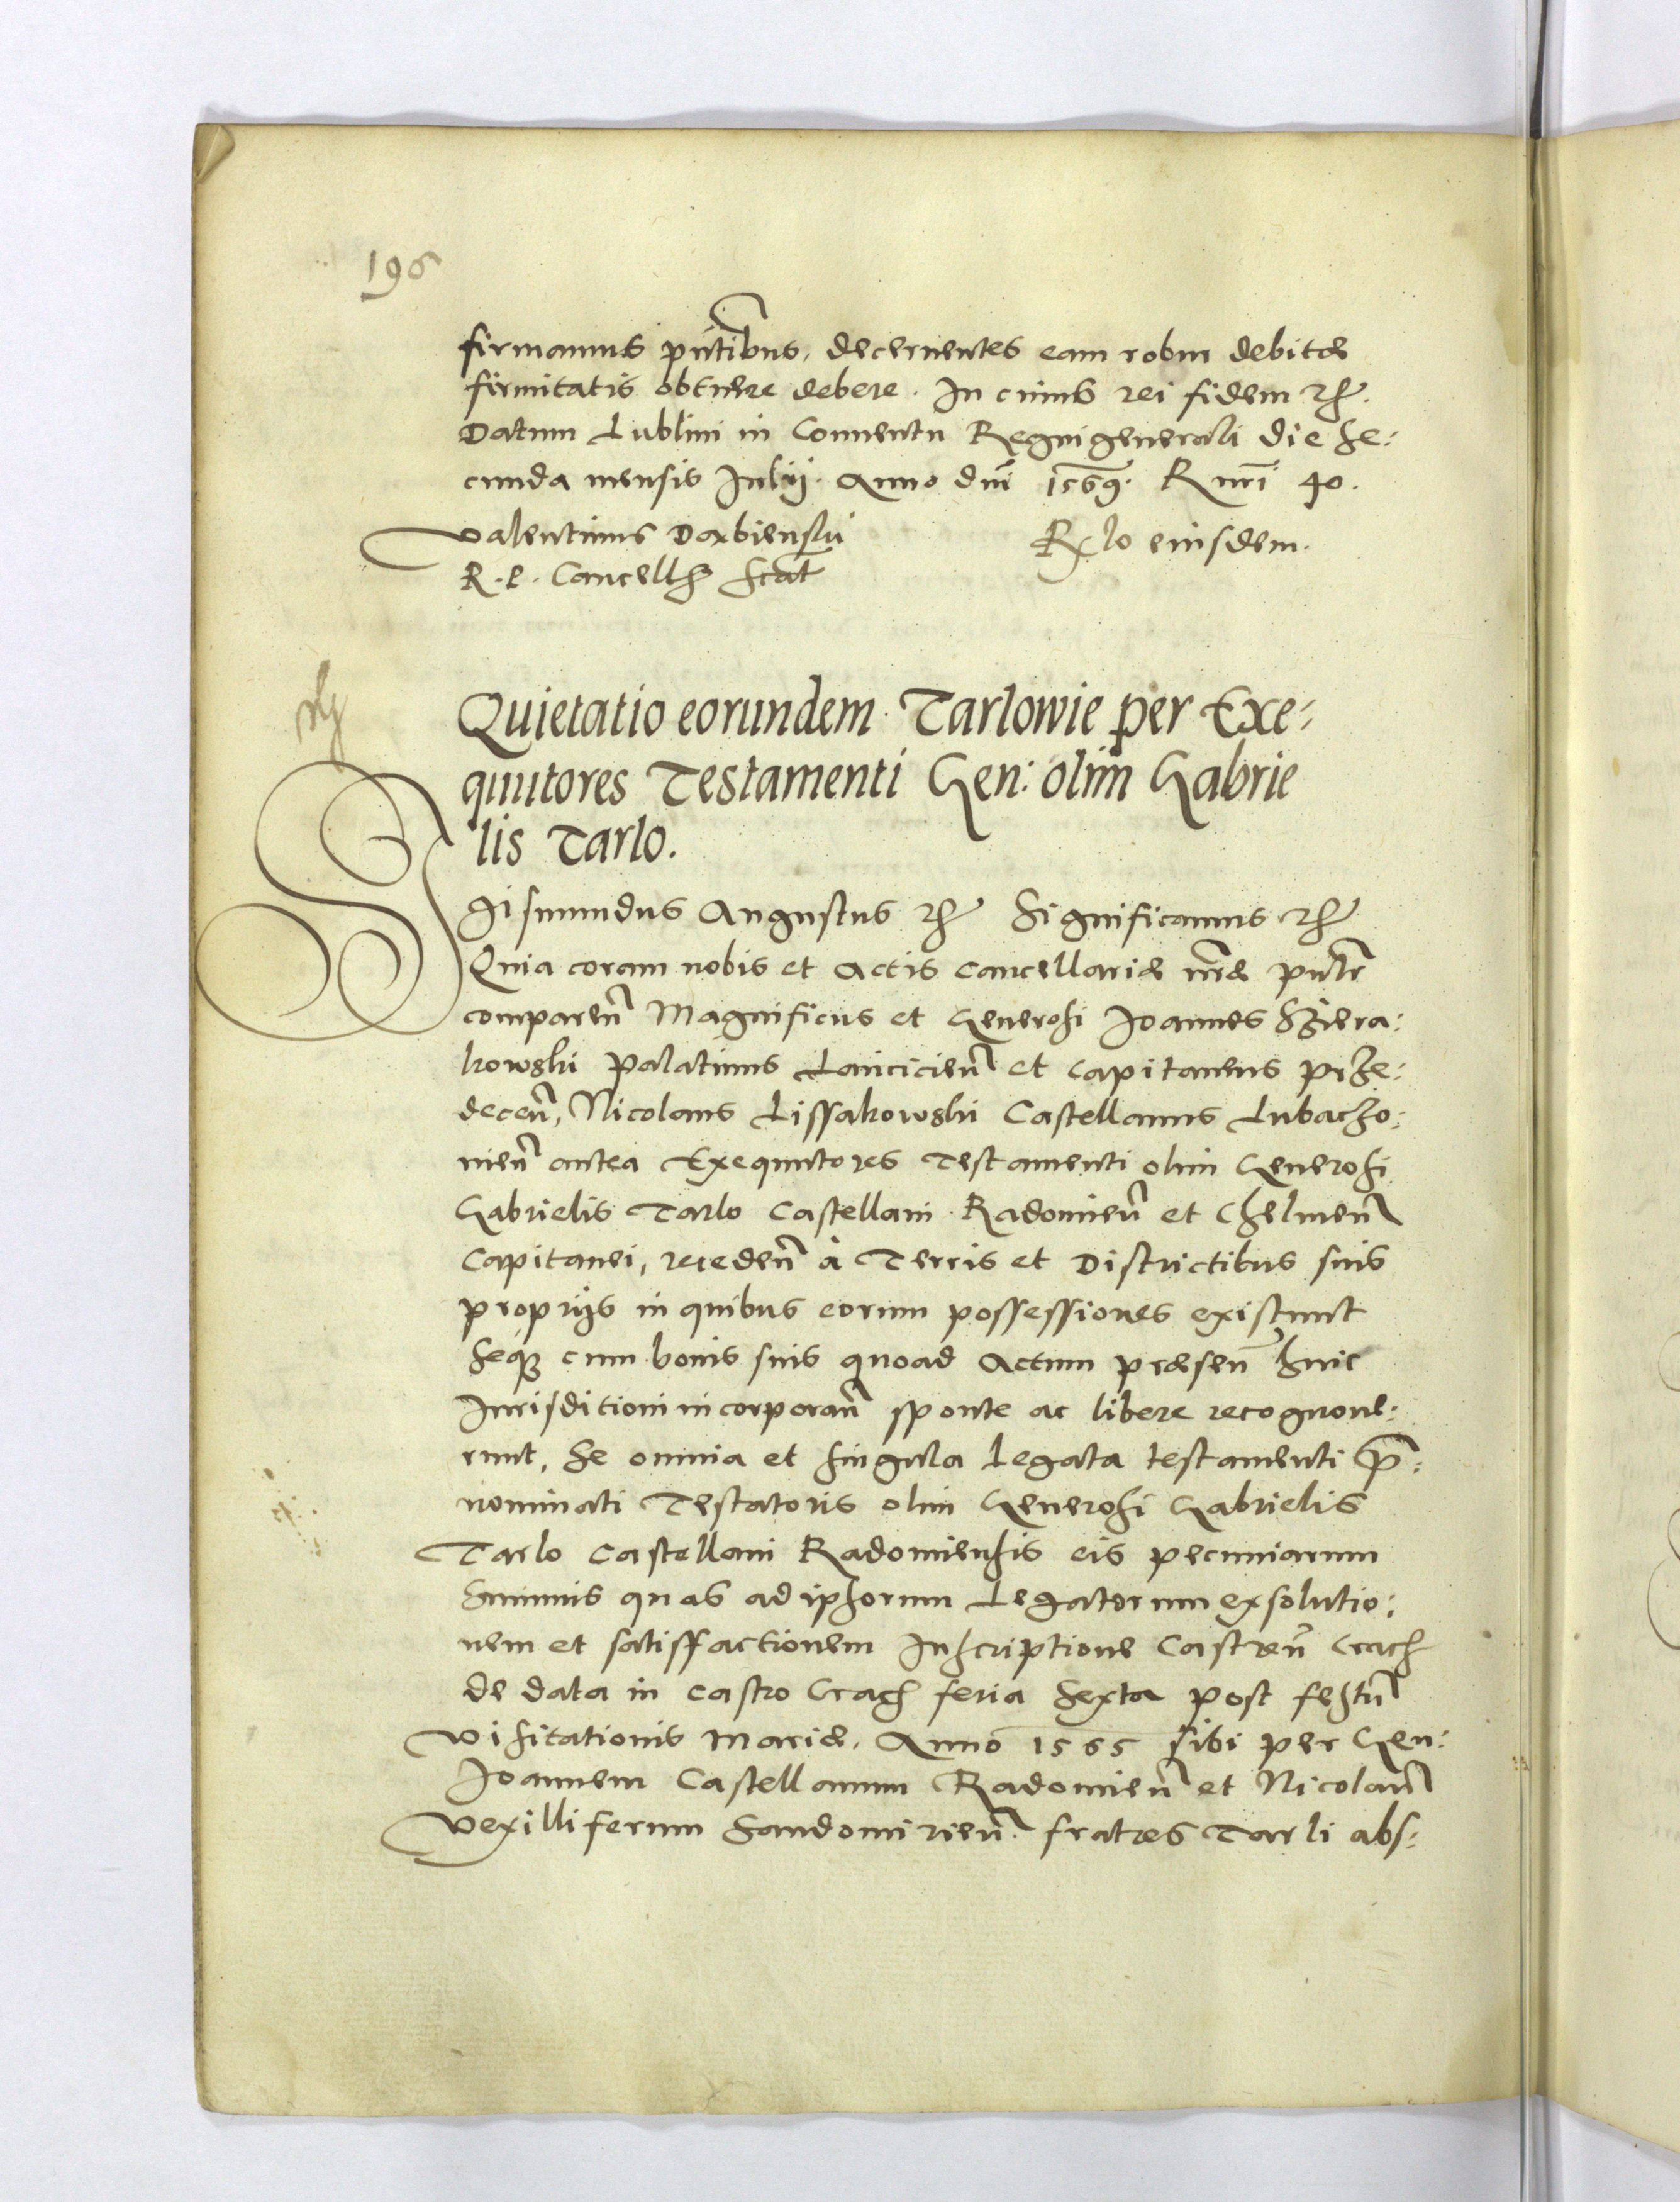 196
firmamus pntibus, decernentes eam robur debitae
firmitatis obtinere debere. In cuius rei fidem etc.
Datum Lublini in Conventu Regni generali die se:
cunda mensis Julij. Anno dni 1569. R nri 40.
Valentinus Dąbienski
R. P. Cancell scpt
Rlo eiusdem.
Quietatio eorundem Tarlowie per Exe:
quutores Testamenti Gen: olim Gabrie
lis Tarlo.
Sigismundus Augustus etc Significamus etc
Quia coram nobis et Actis cancellariae nrae pntr
comparen Magnificus et Generosi Joannes Sziera:
kowski Palatinus Lancicien et Capitaneus Prze:
decen, Nicolaus Lissakowski Castellanus Lubaczo:
nien antea Exequutores Testamenti olim Generosi
Gabrielis Tarlo Castellani Radomien et Chelmen
Capitanei, receden à Terris et Districtibus suis
proprijs in quibus eorum possessiones existunt
seq cum bonis suis quoad Actum praesen huic
Jurisditioni incorporan sponte ac libere recognove:
runt, se omnia et singula Legata testamenti p:
nominati Testatoris olim Generosi Gabrielis
Tarlo Castellani Radomiensis eis pecuniarum
Summis quas ad ipsorum Legatorum exsolutio:
nem et satisffactionem Inscriptione Castren Crac
de data in castro Crac feria Sexta post festu
visitationis Mariae. Anno 1565 sibi per Gen:
Joannem Castellanum Radomien et Nicolaum
Vexilliferum Sandomirien. fratres Tarli abs: